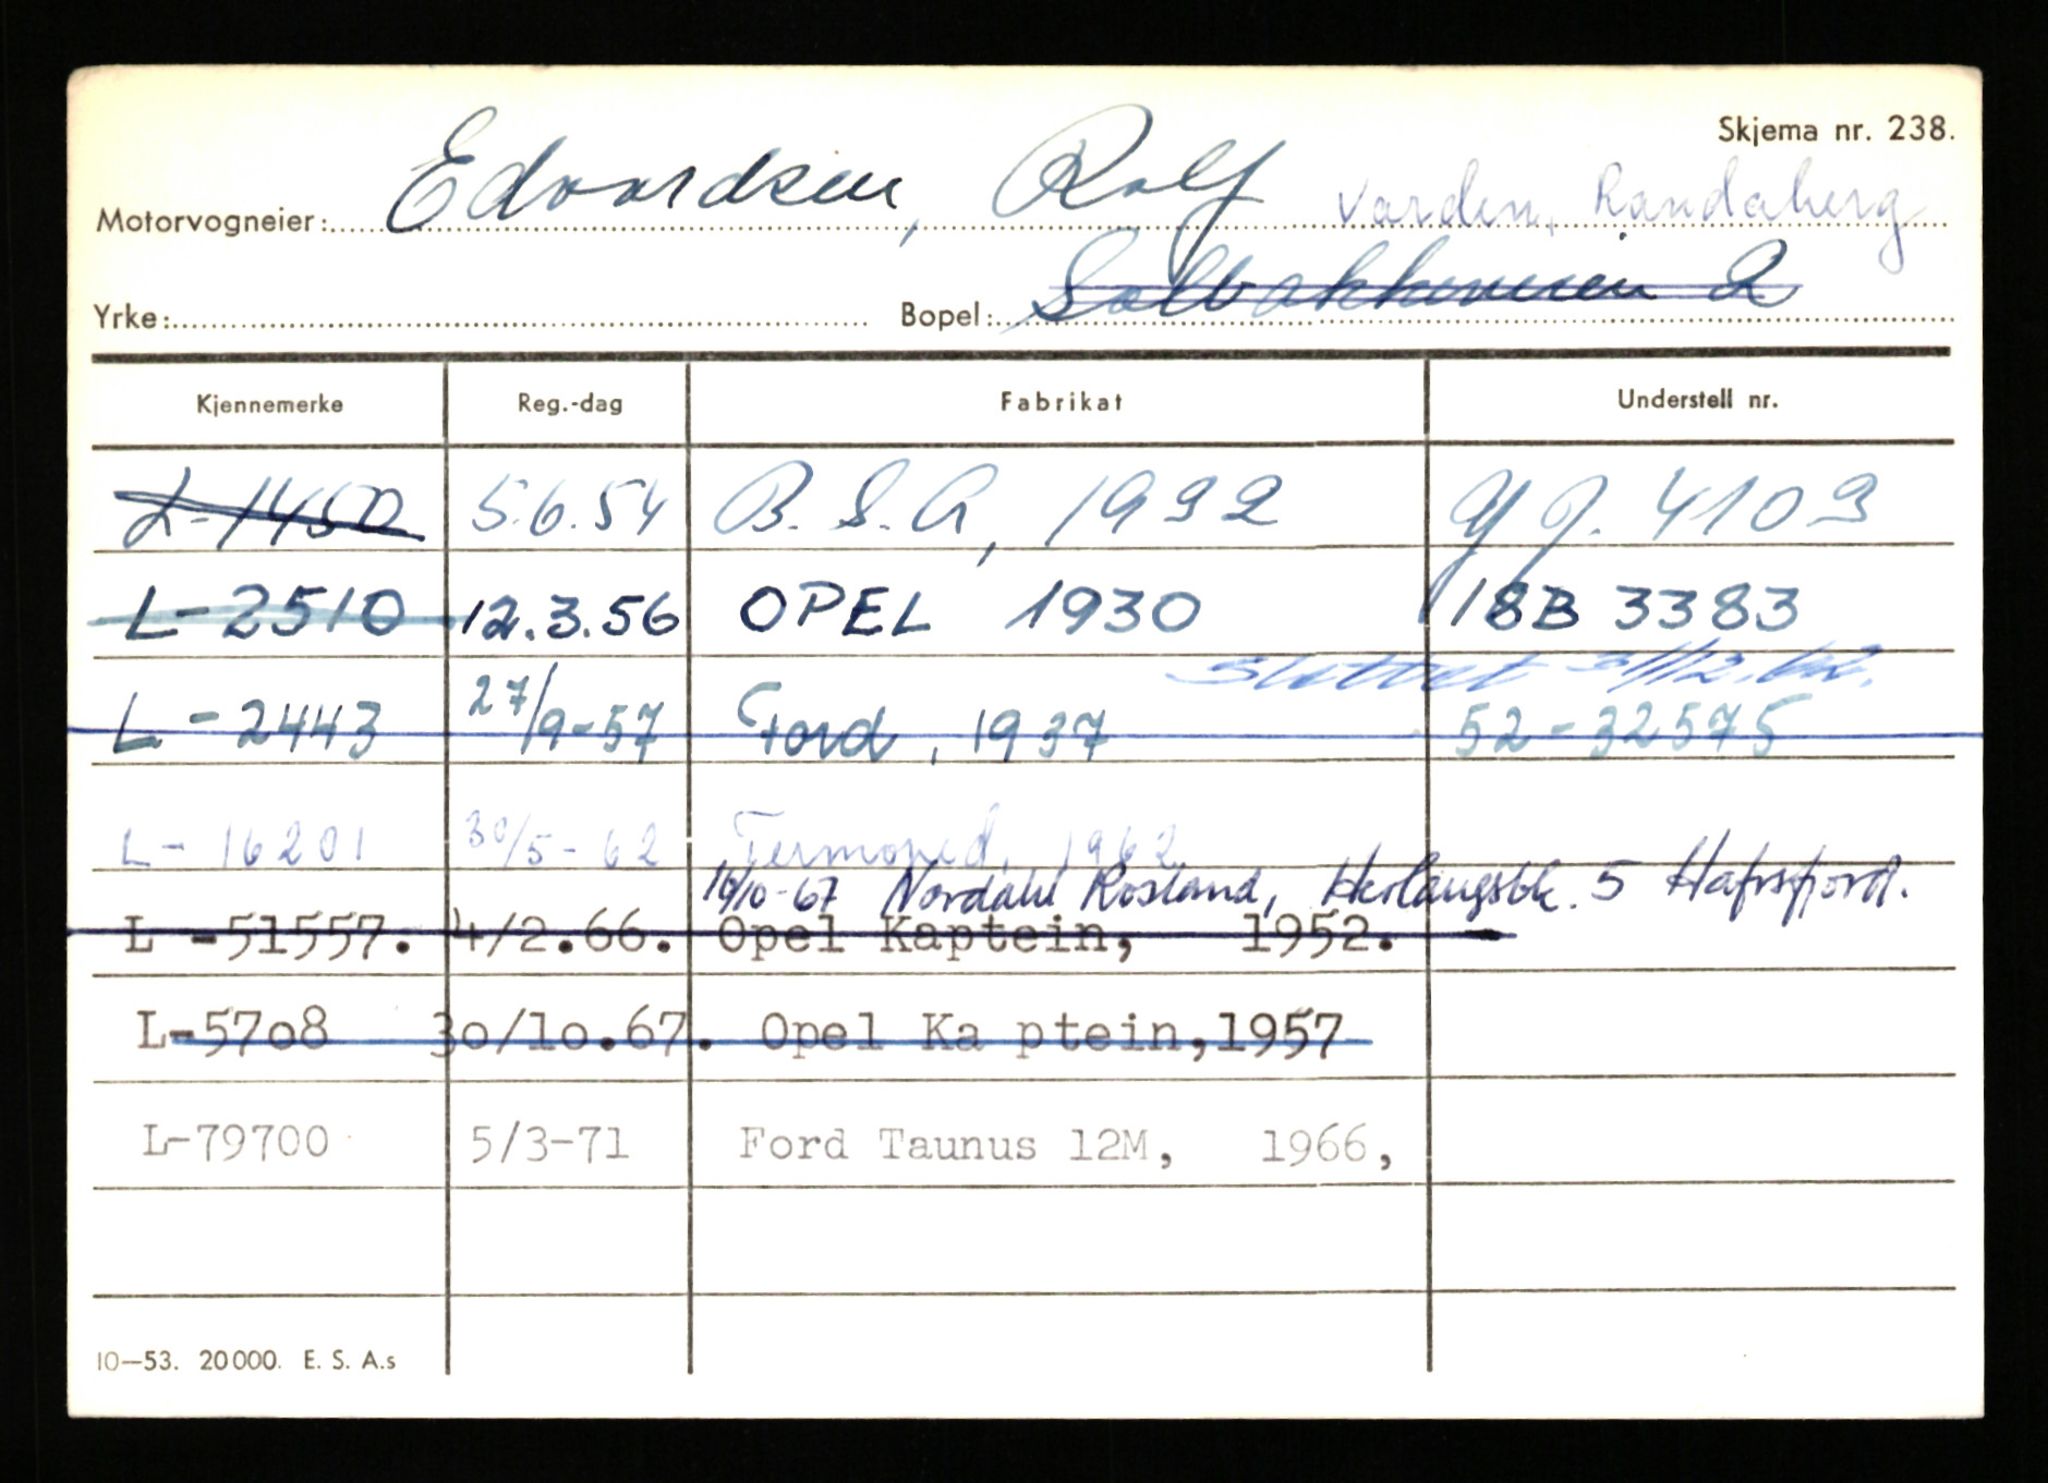 Skjema nr. 238.
Motorvogneier: Edvardsen, Rolf Varden, Randaberg
Yrke: Bopel: Solbakkeveien 2
Kjennemerke Reg.-dag Fabrikat Understell nr.
L-1450 5.6.54 B.S.A, 1932 Y J. 4103
L-2510 12.3.56 OPEL 1930 18B 3383
Slettet 31/12.62.
L-2443 27/9-57 Ford, 1937 52-32575
L-16201 30/5-62 Termoped, 1962
16/10-67 Nordahl Rosland, 5 Hafrsfjord.
L -51557. 4/2.66. Opel Kaptein, 1952.
L-57o8 3o/1o.67. Opel Ka ptein,1957
L-79700 5/3-71 Ford Taunus 12M, 1966,
10—53. 20000. E. S. A.s